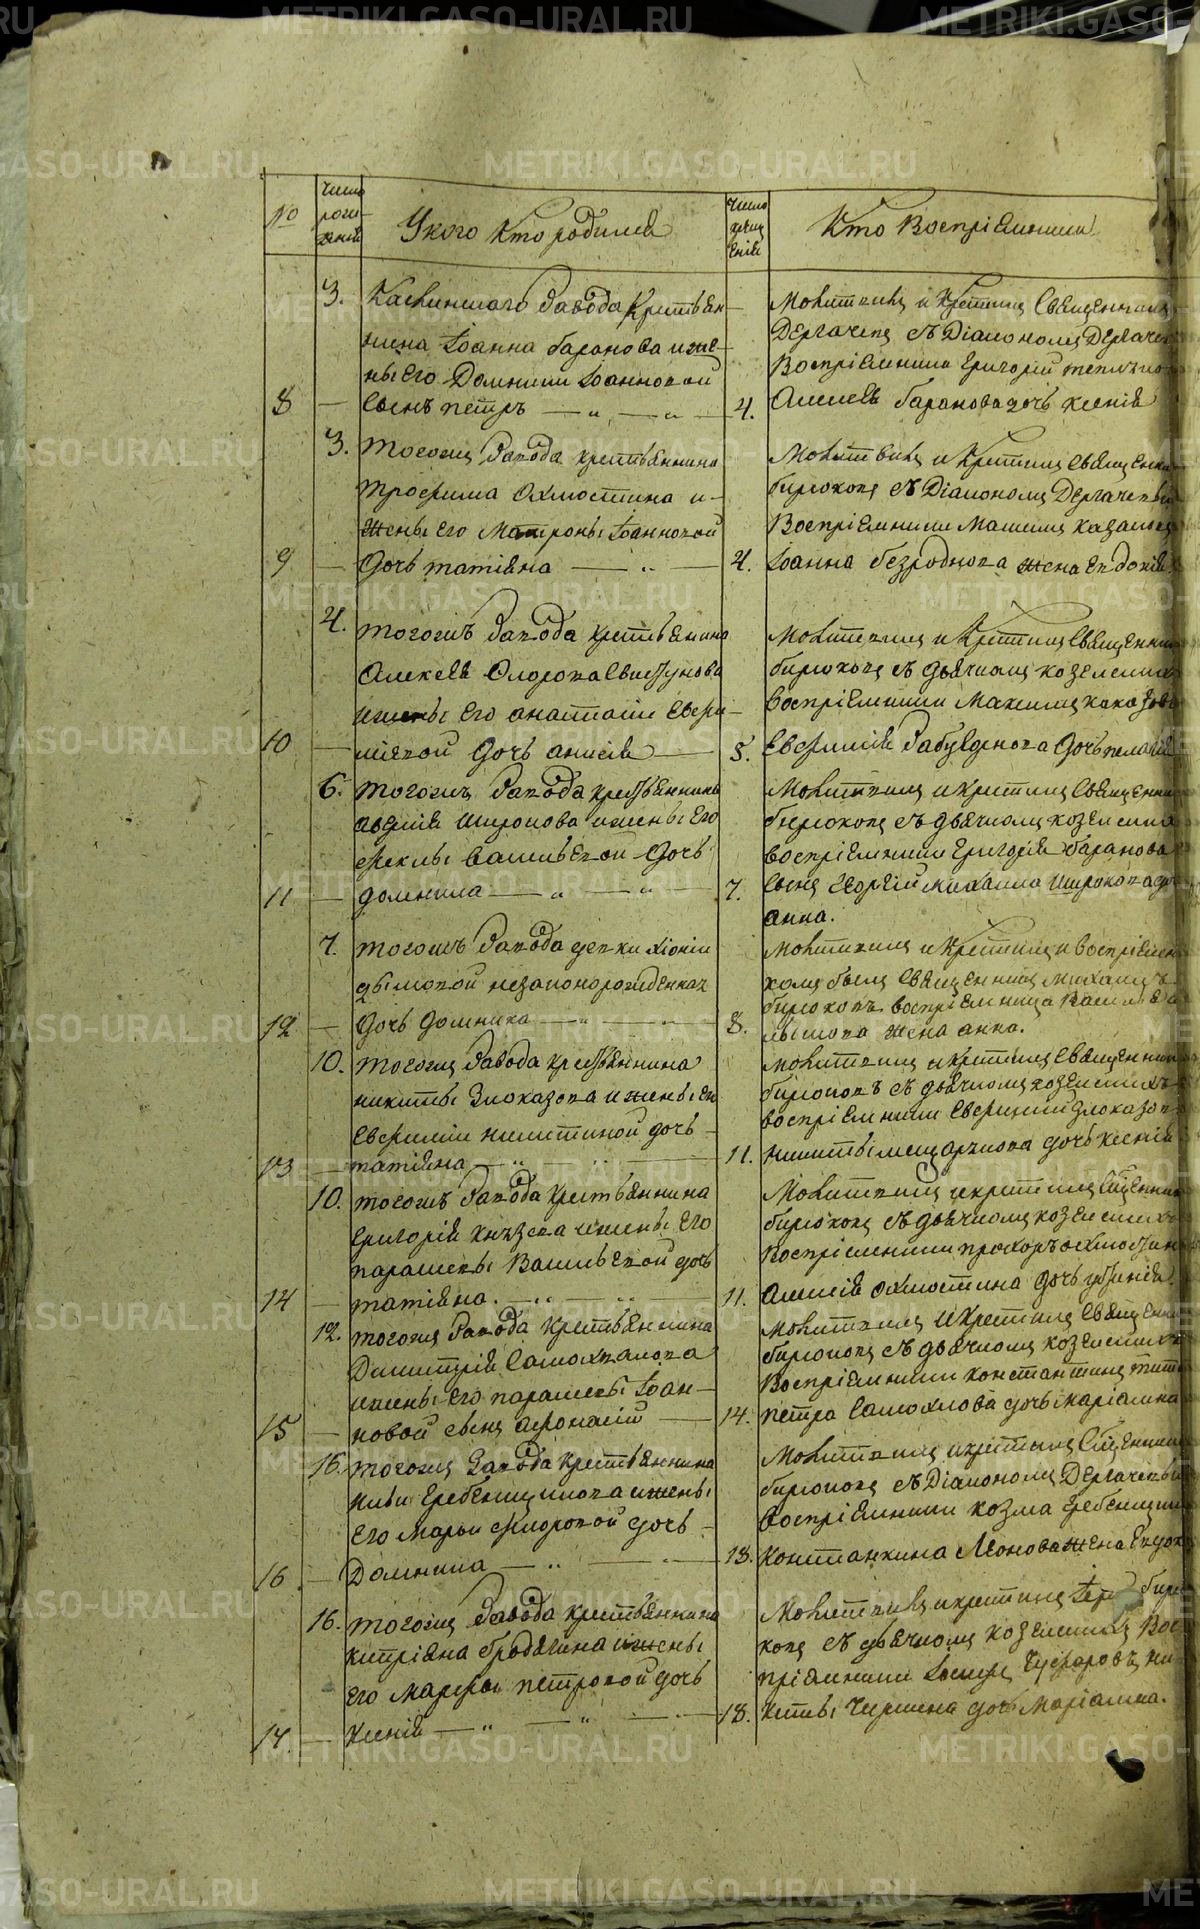 METRIKI.GASO-URAL.RU
№
Число
рож-
дений
У кого Кто родился
Число
крещ
ений
Кто Воспріемники
3. Каслинскаго Завода Крестьян-
нина Іоанна баранова и же-
ны Его Домники Іоанновой
8 — Сынъ петръ — „ — „ — 4.
Молитвилъ и Крестилъ Священникъ
Дергачевъ съ Діакономъ Дергаче
Воспріемники Григорій
Алексѣя баранова дочь ксенія
3. тогожъ Завода крестьянина
трофима Охмостина и
жены его Матроны Іоанновой
9 — Дочь татіяна — „ — 4.
Молитвилъ и Крестилъ Священни
бирюковъ съ Діакономъ Дергачевы
Воспріемники Максимъ казаков
Іоанна безроднова жена Евдокія
4. тогожъ Завода крестьянина
Алексѣя Сидорова
и жены его анастасіи Ефи-
міевой Дочь анисія — 5.
10
Молитвилъ и Крестилъ Священни
бирюковъ съ дьячкомъ козельски
воспріемники Максимъ
Евфимія Забуденова Дочь пелагія
6. тогожъ Завода крестьянина
авдѣя Широкова и жены Его
феклы Васильевой Дочь
11 — домника — „ — „ — 7.
Молитвилъ и крестилъ Священни
бирюковъ съ дьячкомъ козельски
воспріемники Григорія баранова
Сынъ Георгій михаила Широкова до
анна.
7. тогожъ Завода девки хіоніи
дымовой незаконорожденная
12 — дочь домника — „ — 8.
Молитвилъ и Крестилъ и воспріемни
комъ былъ Священникъ Михаилъ
бирюковъ воспріемница Василья
жена анна.
10. тогожъ Завода крестьянина
никиты Злоказова и жены ег
Евфиміи никитиной дочь
13 — татіяна — „ — 11.
молитвилъ и крестилъ Священни
бирюковъ съ дьячкомъ козельскимъ
воспріемники Евфимій злоказов
никиты мещерякова дочь ксенія
10. тогожъ Завода крестьянина
Григорія князева и жены Его
парасквы Васильевой дочь
14 — татіяна. — „ — „ — 11.
Молитвилъ и крестилъ Священни
бирюковъ съ дьячкомъ козельски
Воспріемники прохоръ охмостин
Алексѣя охмостина дочь устинія.
12. тогожъ Завода крестьянина
Димитрія Самохвалова
и жены его парасквы Іоан-
новой сынъ афонасій — 14.
15
Молитвилъ и Крестилъ Священни
бирюковъ съ дьячкомъ козельски
Воспріемники константинъ тит
петра Самохлова дочь маріамна
16. тогожъ Завода крестьянина
Гребенщикова и жены
его Марьи Сидоровой дочь
16 — Домника — „ — „ — 18.
Молитвилъ и крестилъ Священни
бирюковъ съ Діакономъ Дергачевы
Воспріемники козма Гребенщик
константина Леонова жена Евдок
16. тогожъ Завода крестьянина
кипріяна бродягина и жены
Его марфы петровой дочь
17. — ксенія — „ — „ — 18.
Молитвилъ и крестилъ Іерей бирю
ковъ съ дьячкомъ козельскимъ Вос
пріемники Іосифъ Чуфаровъ ни-
киты дочь Маріамна.